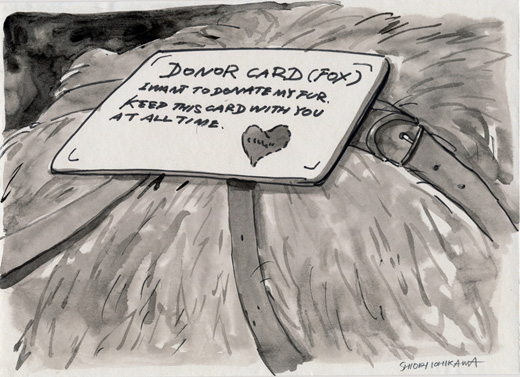 DONOR CARD (FOX)
I WANT TO DONATE MY FUR.
KEEP THIS CARD WITH YOU
AT ALL TIME.
SHIORI ICHIKAWA